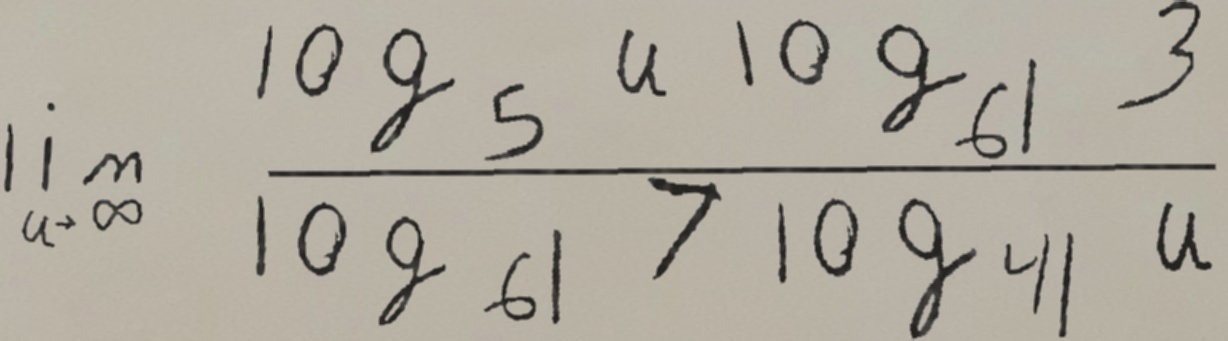 \lim_{u \to \infty} \frac{\log_5 u \log_{61} 3}{\log_{61} 7 \log_{41} u}